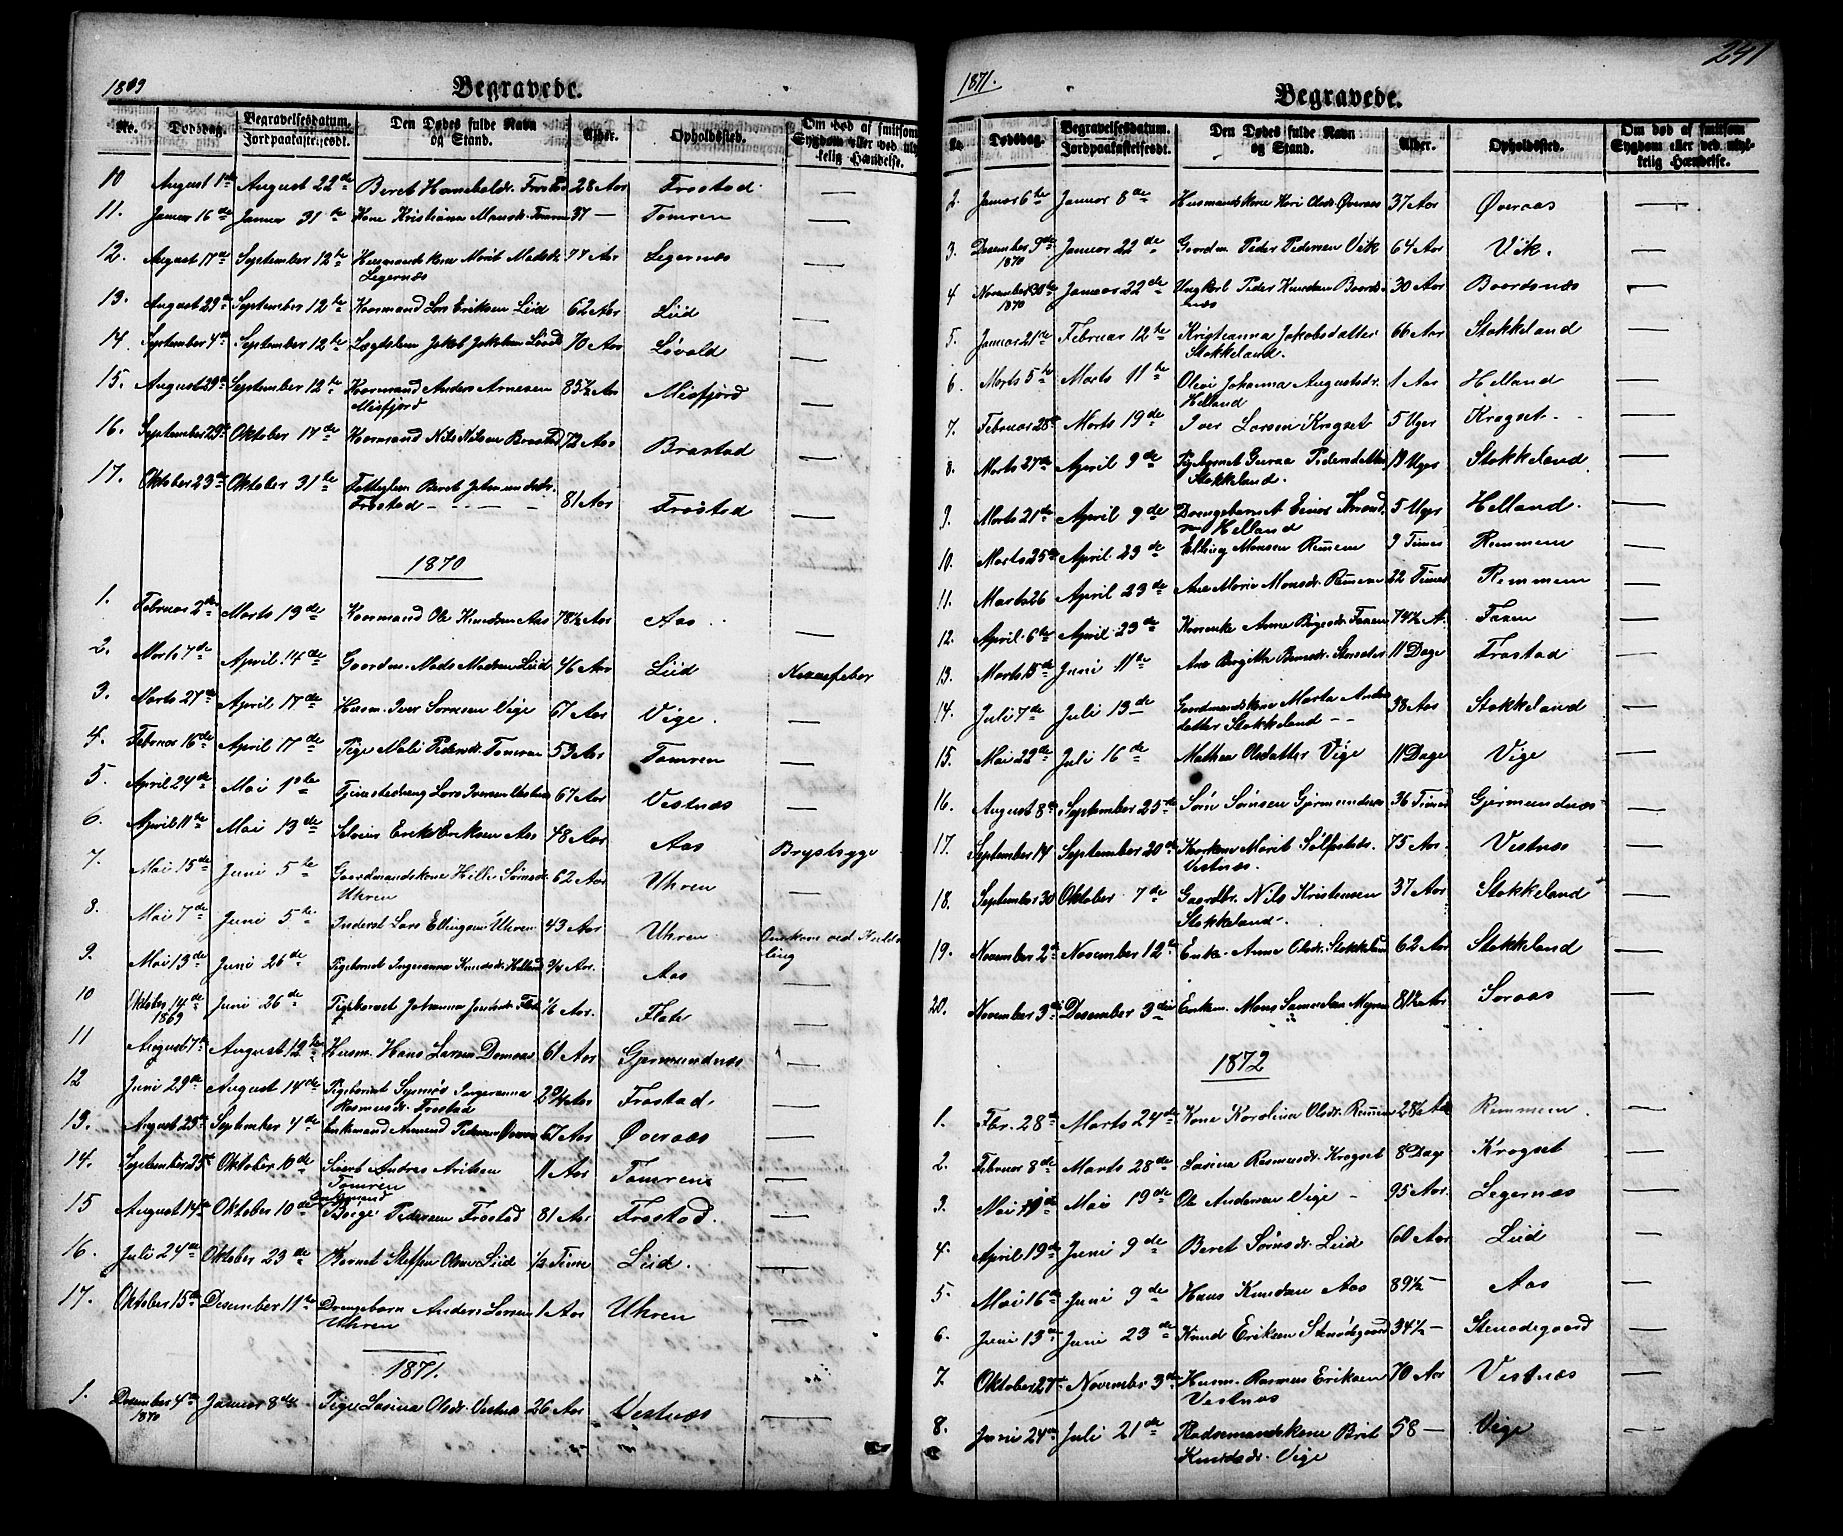 1869
Begravede.
No. Dødsdag. Begravelsesdatum. Jordpaakastelsesdt. Den Dødes fulde Navn og Stand. Alder. Opholdssted. Om død af smitsom Sygdom eller ved ulykkelig Hændelse.
10 August 1ste August 22de Beret 28 Aar Frostad. —
11. Januar 16de Januar 31te Kone Kristiana Monsdr. Tomren 37 — Tomren —
12. August 17de September 12te Husmandskone Marit Madsdr. 77 Aar Legernæs —
Legernæs
13. August 29de September 12te Kaarmand Lars Eriksen Liid 62 Aar Liid —
14. September 4de September 12te Lægdslem Jakob Jakobsen 70 Aar Løvold —
15. August 29de September 12te Kaarmand Anders Arnesen 83½ Aar Misfjord —
Misfjord
16. September 29de Oktober 17de Kaarmand Nils Nilsen Brastad 72 Aar Brastad —
17. Oktober 23de Oktober 31te Fattiglem Beret 81 Aar Frostad —
Frostad
1870
1. Februar 2den Marts 13de Kaarmand Ole Knudsen Aas 78½ Aar Aas —
2. Marts 7de April 14de Gaardm. Mads Madsen Liid 46 Aar Liid Nervefeber
3. Marts 27de April 17de Husm. Iver Sørnesen Vige 67 Aar Vige. —
4. Februar 16de April 17de Pige Mali Pedersdr. Tomren 53 Aar Tomren —
5. April 24de Mai 1ste Lars Iversen Vestnæs 67 Aar Vestnæs —
6. April 11te Mai 13de Erik Eriksen Aas 48 Aar Aas Brystsyge
7. Mai 15de Juni 5te Gaardmandskone Sørnsdr. 62 Aar Uhren —
Uhren
8. Mai 7de Juni 5te Inderst Lars Ellingsen Uhren 43 Aar Uhren Omkom ved Kuldseiling
9. Mai 13de Juni 26de Pigebarnet Ingeranna Knudsdr. Helland ¾ Aar. Aas —
10 Oktober 14de 1869 Juni 26de Pigebarnet Johanna Flate ⅙ Aar. Flate —
11 August 7de August 12te Husm. Hans Larsen 61 Aar Gjermundnæs —
12 Juni 29de August 14de Pigebarnet Ingeranna 2¾ Aar Frostad. —
Rasmusdr. Frostad
13. August 25de September 4de Enkemand Pedersen Øveraas 67 Aar Øveraas —
14. September 25de Oktober 10de Sivert Andreas 11 Aar Tomren —
Tomren
15 August 14de Oktober 10de Enkemand Børge Pedersen Frostad 81 Aar Frostad. —
16. Juli 24de Oktober 23de Barnet Steffen Olsen Liid ½ Time Liid. —
17. Oktober 15de Desember 11te Drengebarn Anders Larsen 1 Aar Uhren —
Uhren
1871.
1. Desember 4de 1870 Januar 8de Pige Lasina Olsdr. Vestnæs 26 Aar Vestnæs —
1871.
Begravede.
241
No. Dødsdag. Begravelsesdatum. Jordpaakastelsesdt. Den Dødes fulde Navn og Stand. Alder. Opholdssted. Om død af smitsom Sygdom eller ved ulykkelig Hændelse.
2. Januar 6te Januar 8de Husmandskone Kari Olsdr. Øveraas 37 Aar Øveraas —
3. Desember 9de 1870 Januar 22de Gaardm. Peder Pedersen Vik 64 Aar Vik. —
4 November 30te 1870 Januar 22de Ungkarl Peder Knudsen Baardsnæs 30 Aar Baardsnæs —
5. Januar 21de Februar 12te Kristianna Jakobsdatter 66 Aar Stokkeland —
Stokkeland.
6. Marts 5te Marts 11te Olivi Johanna Augustsdr. 1 Aar Helland —
Helland
7. Februar 28de Marts 19de Iver Larsen Krogset 5 Uger Krogset —
8. Marts 27de April 9de Pigebarnet Guroe Pedersdatter 13 Uger Stokkeland —
Stokkeland.
9. Marts 21de April 9de Drengebarnet Einar 5 Uger Helland. —
Helland
10. Marts 25de April 23de Elling Monsen Remmem 9 Timer Remmem —
11. Marts 26 April 23de Ane Marie Monsdr. Remmem 22 Timer Remmem —
12. April 6te April 23de Anne Børgesdr. Faxen 74½ A. Faxen —
13. Marts 15de Juni 11te Ane Birgitte 11 Dage Frostad —
14. Juli 7de Juli 13de Gaardmandskone Marta Andersdatter Stokkeland 38 Aar Stokkeland —
15. Mai 22de Juli 16de Mathea Olsdatter Vige 11 Dage Vige —
16. August 8de September 25de Søren Sørnsen Gjermundnæs 36 Timer Gjermundnæs —
17. September 14 September 20de Marit 75 Aar. Vestnæs —
Vestnæs
18. September 30 Oktober 7de Gaardbr. Nils Kristensen 37 Aar Stokkeland —
Stokkeland
19. November 2de November 12te Enke Anne Olsdr. Stokkeland 62 Aar Stokkeland —
20. November 3de Desember 3die Enkem. Mons Samuelsen 81½ Aar Soraas —
1872
1. Fbr. 28de Marts 24de Kone Karolina Olsdr. Remmem 28½ Aar Remmem. —
2. Februar 8de Marts 28de Lasina Rasmusdr. Krogset 8 Dage Krogset —
3. Mai Mai 19de Ole Andersen Vige 95 Aar. Legernæs —
4. April 19de Juni 9de Beret Sørnsdr. Liid 60 Aar Liid —
5. Mai 16de Juni 9de Hans Knudsen Aas 89½ — Aas —
6. Juni 13de Juni 23de Knud Eriksen Stenødegaard 34½ — Stenødegaard —
7. Oktober 27de November 3de Husm. Rasmus Eriksen 70 Aar Vestnæs —
Vestnæs
8. Juni 24de Juli 21de Baadsmandskone Brit 58 — Vige —
Knudsdr. Vige